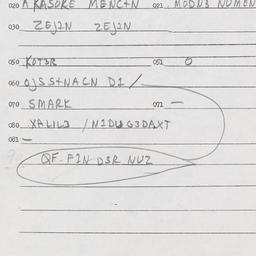 020 A KASOKE MENCIN 021 MODN3 NUMEN
030 ZEJ2N ZEJ2N
050 KOT3R 051 O
060 OJSSTNACN D1/
070 SMARK 071 —
080 XALIL3 /N2DUG3DAXT
081 —
QF-F2N D3R NUZ